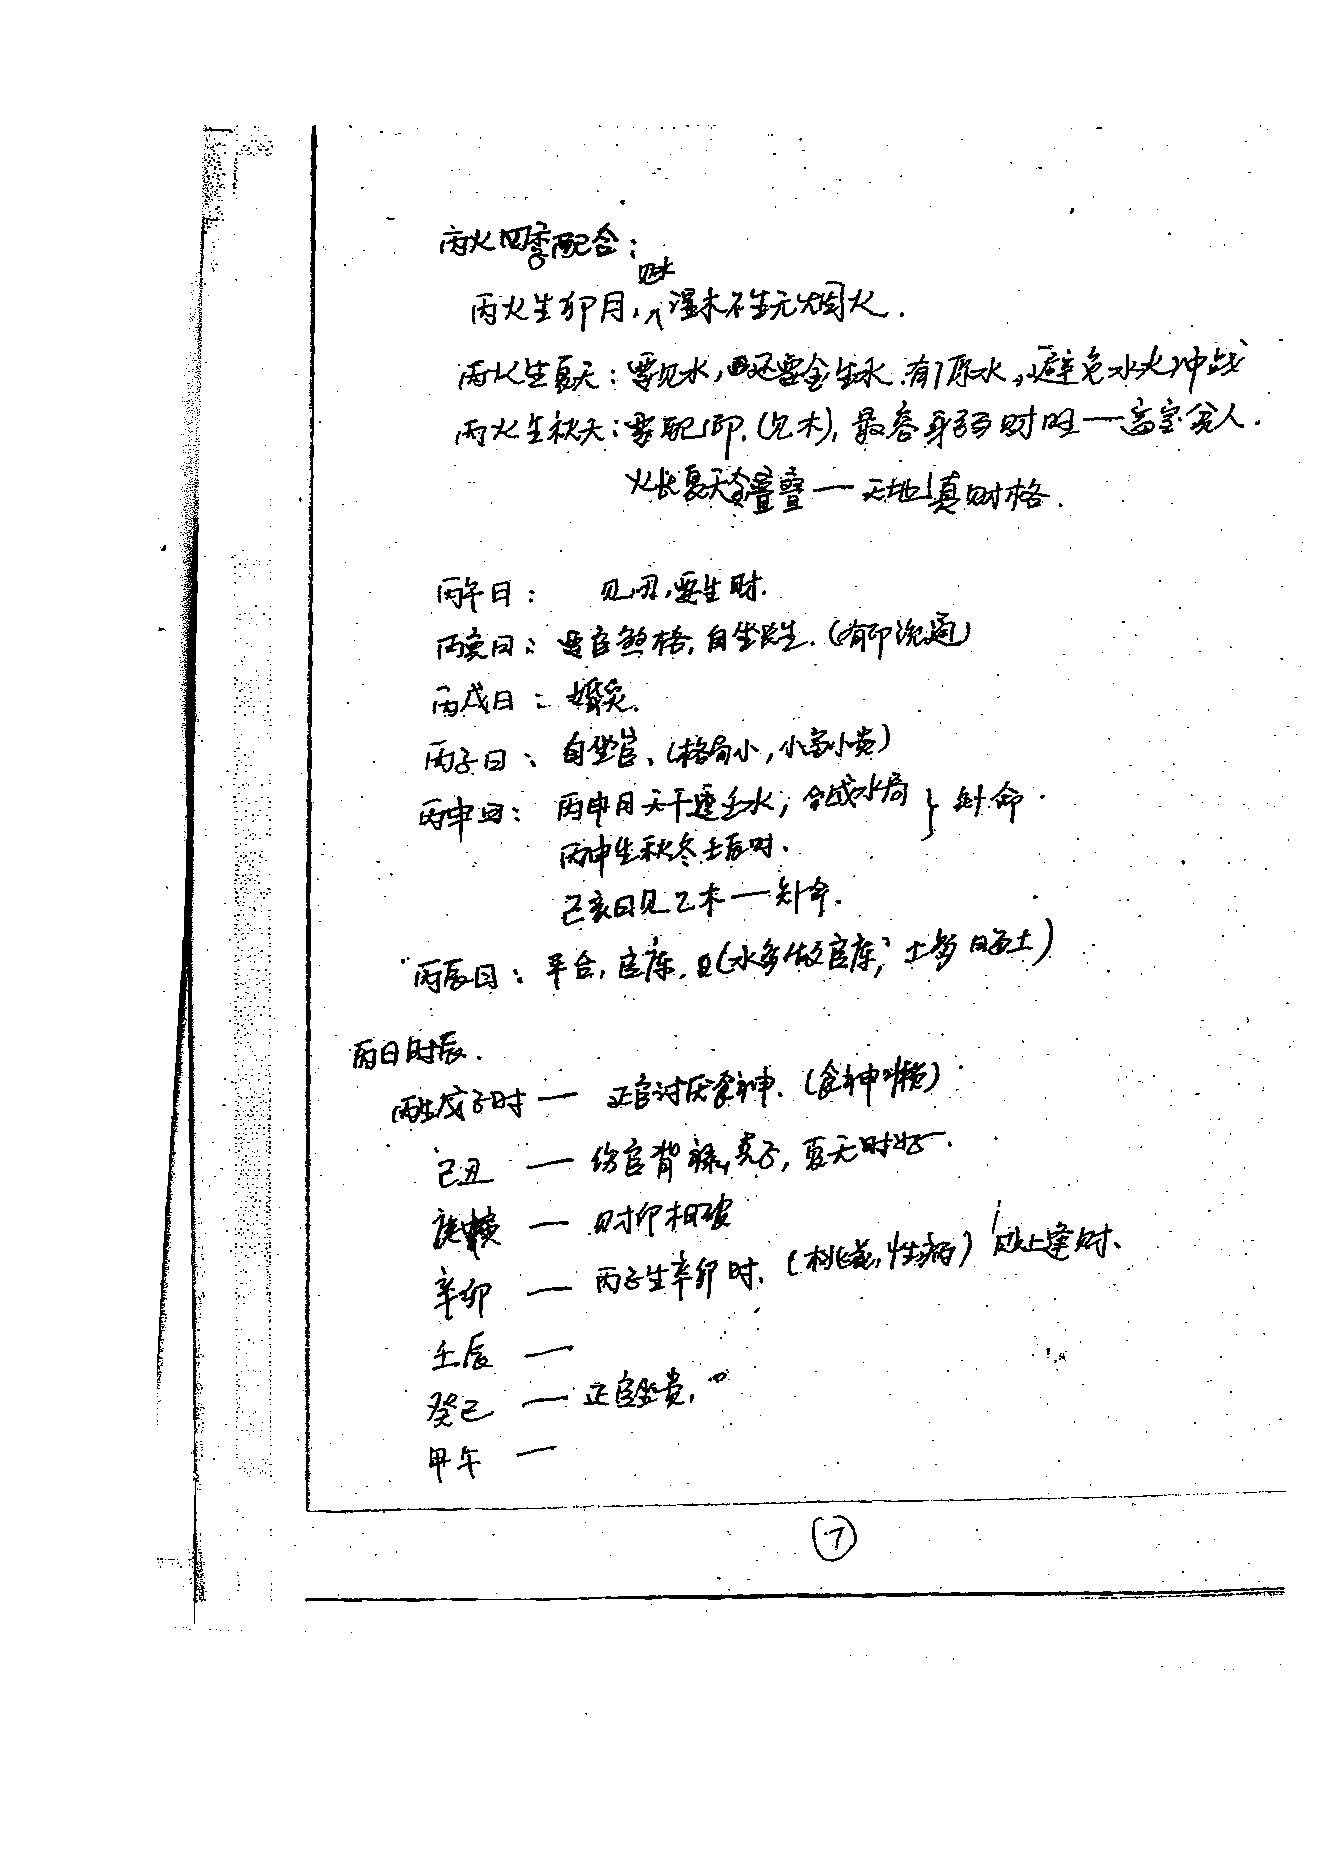 丙火四季配合：
丙火生卯月，见水湿木不生无焰火．
丙火生夏天：要见水，还要金生水．有原水，避免水火冲战
丙火生秋天：要配印．(见木)，最忌身弱财旺一富室贫人．
火长夏天金叠叠 — 天地真财格．
丙午日： 见丑，要生财．
丙寅日： 要官煞格，自坐长生．(有印流通)
丙戌日： 婚灾．
丙子日： 自坐官、(格局小，小富小贵)
丙申日： 丙申月天干透壬水，合成水局 } 夭命．
丙申生秋冬壬辰时．
己亥日见乙木 — 夭命．
丙辰日： 平合，官库．(水多做官库；土多晦土)
丙日时辰．
丙生戊子时 — 正官讨厌食神．(食神懒)
己丑 — 伤官背禄，克子，夏天时好．
庚寅 — 财印相破
辛卯 — 丙子生辛卯时．(桃花，性病) 以上逢财、
壬辰 —
癸巳 — 正官坐贵．
甲午 —
7